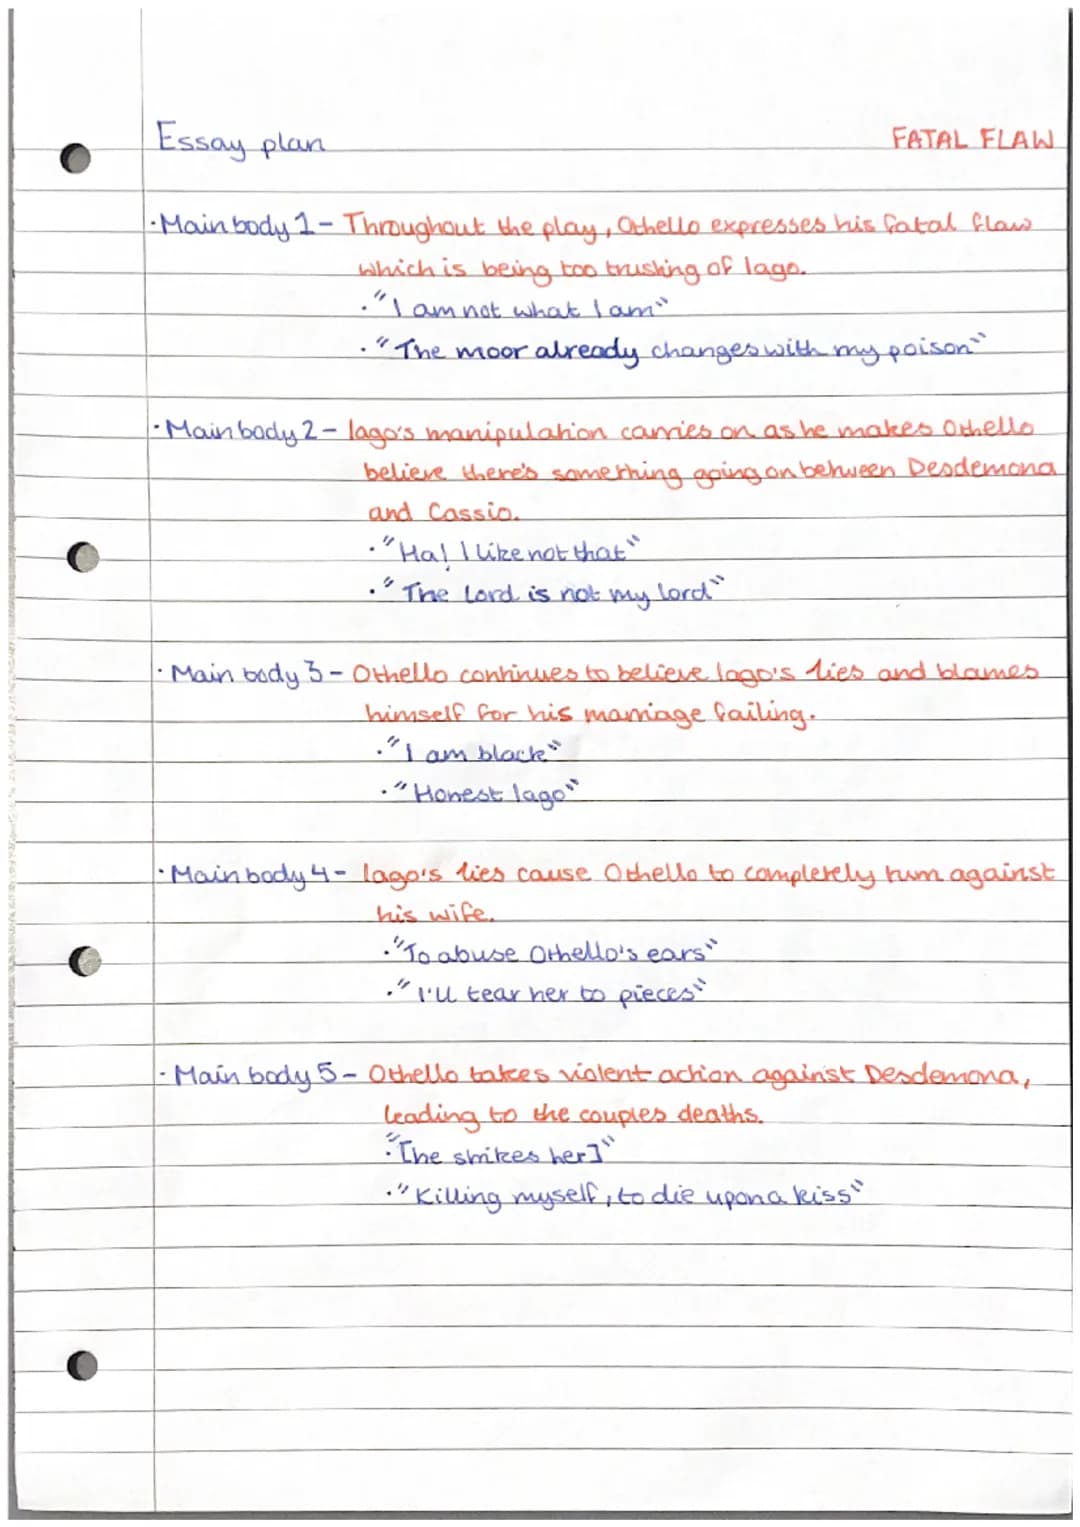 Essay plan
FATAL FLAW
·Main body 1- Throughout the play, Othello expresses his fatal flaw
which is being too trusting of Iago.
·"I am not what I am"
·"The moor already changes with my poison"
·Main body 2- Iago's manipulation carries on as he makes Othello
believe there's something going on between Desdemona
and Cassio.
·"Ha! I like not that"
·"The Lord is not my lord"
·Main body 3- Othello continues to believe Iago's lies and blames
himself for his marriage failing.
·"I am black"
·"Honest Iago"
·Main body 4- Iago's lies cause Othello to completely turn against
his wife.
·"To abuse Othello's ears"
·"I'll tear her to pieces"
·Main body 5- Othello takes violent action against Desdemona,
leading to the couples deaths.
·"[he strikes her]"
·"Killing myself, to die upon a kiss"